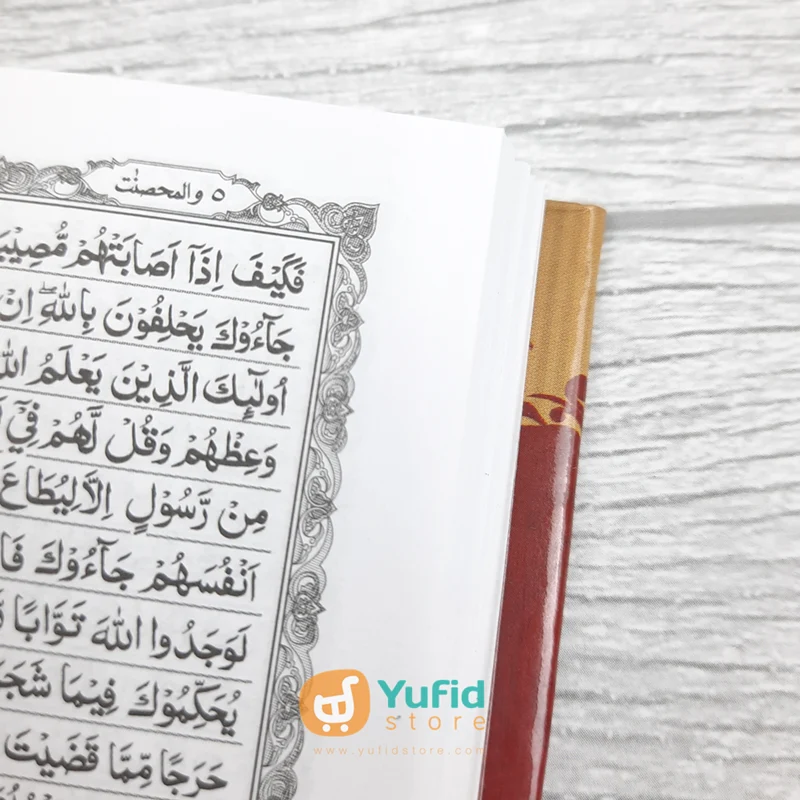 ٥ والمحصنٰت
فَكَيْفَ اِذَآ اَصَابَتْهُمْ
جَآءُوْكَ يَحْلِفُوْنَ بِاللّٰهِ ۖ اِنْ
اُولٰۤىِٕكَ الَّذِيْنَ يَعْلَمُ
وَعِظْهُمْ وَقُلْ لَّهُمْ فِيْٓ
مِنْ رَّسُوْلٍ اِلَّا لِيُطَاعَ
اَنْفُسَهُمْ جَآءُوْكَ
لَوَجَدُوا اللّٰهَ تَوَّابًا
يُحَكِّمُوْكَ فِيْمَا
حَرَجًا مِّمَّا قَضَيْتَ
Yufid
store
www.yufidstore.com